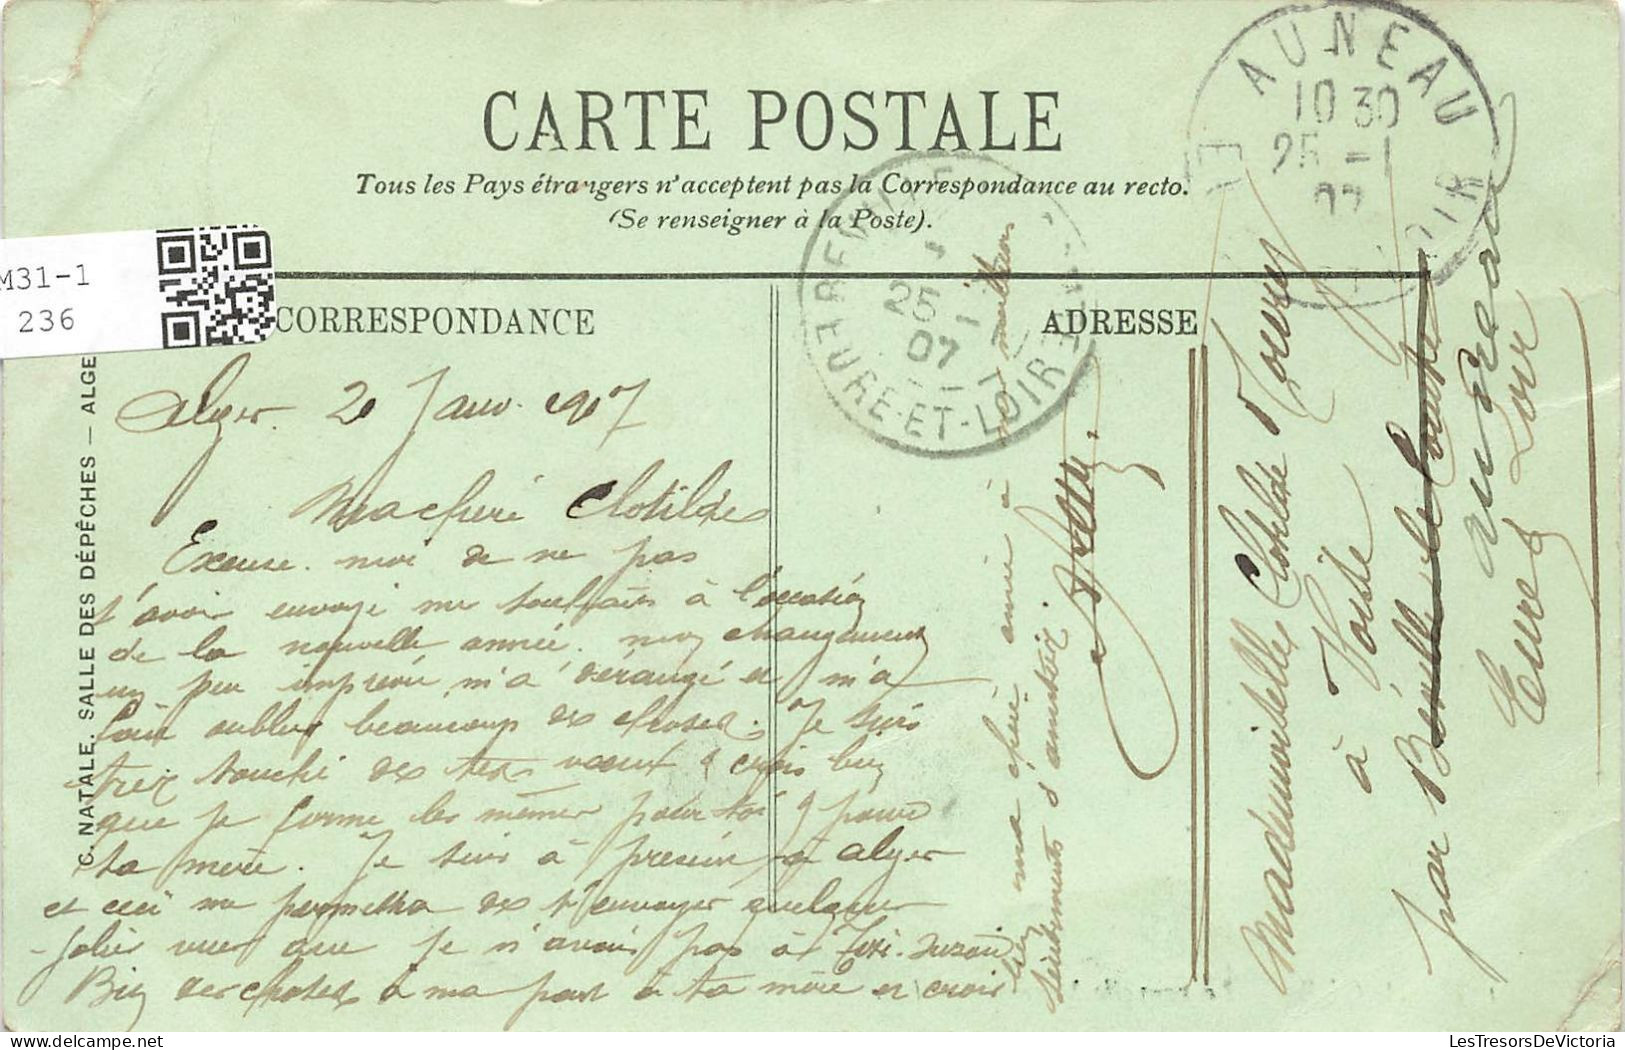 CARTE POSTALE
Tous les Pays étrangers n'acceptent pas la Correspondance au recto.
(Se renseigner à la Poste).
M31-1
236
CORRESPONDANCE
ADRESSE
C. NATALE. SALLE DES DÉPÊCHES — ALGE
AUNEAU
10 30
25 -1
07
25 - 1
07
EURE-ET-LOIR
Alger 20 Janv. 1907
Ma chère Clotilde
Excuse moi de ne pas
t'avoir envoyé me souhaits à l'occasion
de la nouvelle année. mon changement
un peu imprévu m'a dérangé et m'a
fait oublier beaucoup de choses. Je suis
très touché des tes vœux & crois bien
que je forme les mêmes pour toi & pour
ta mère. Je suis à présent à Alger
et ceci me permettra de t'envoyer quelques
jolies vues que je n'avais pas à
Bien des choses à ma part à ta mère et crois
bien ma chère amie à mes meilleurs
sentiments d'amitié.
Mademoiselle Clotilde
à Voise
à
par Béville le Comte
auneau
Eure & Loir
LesTresorsDeVictoria